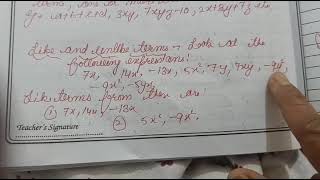 Eg: a+b+c+d, 3xy, 7xyz-10, 2x+3y+7z etc
Like and unlike terms → Look at the
following expressions:
7x, 14x, -13x, 5x², 7y, 7xy, -9y²,
-9x², -5yx,
Like terms from these are:
① 7x, 14x, -13x
② 5x², -9x².
Teacher's Signature